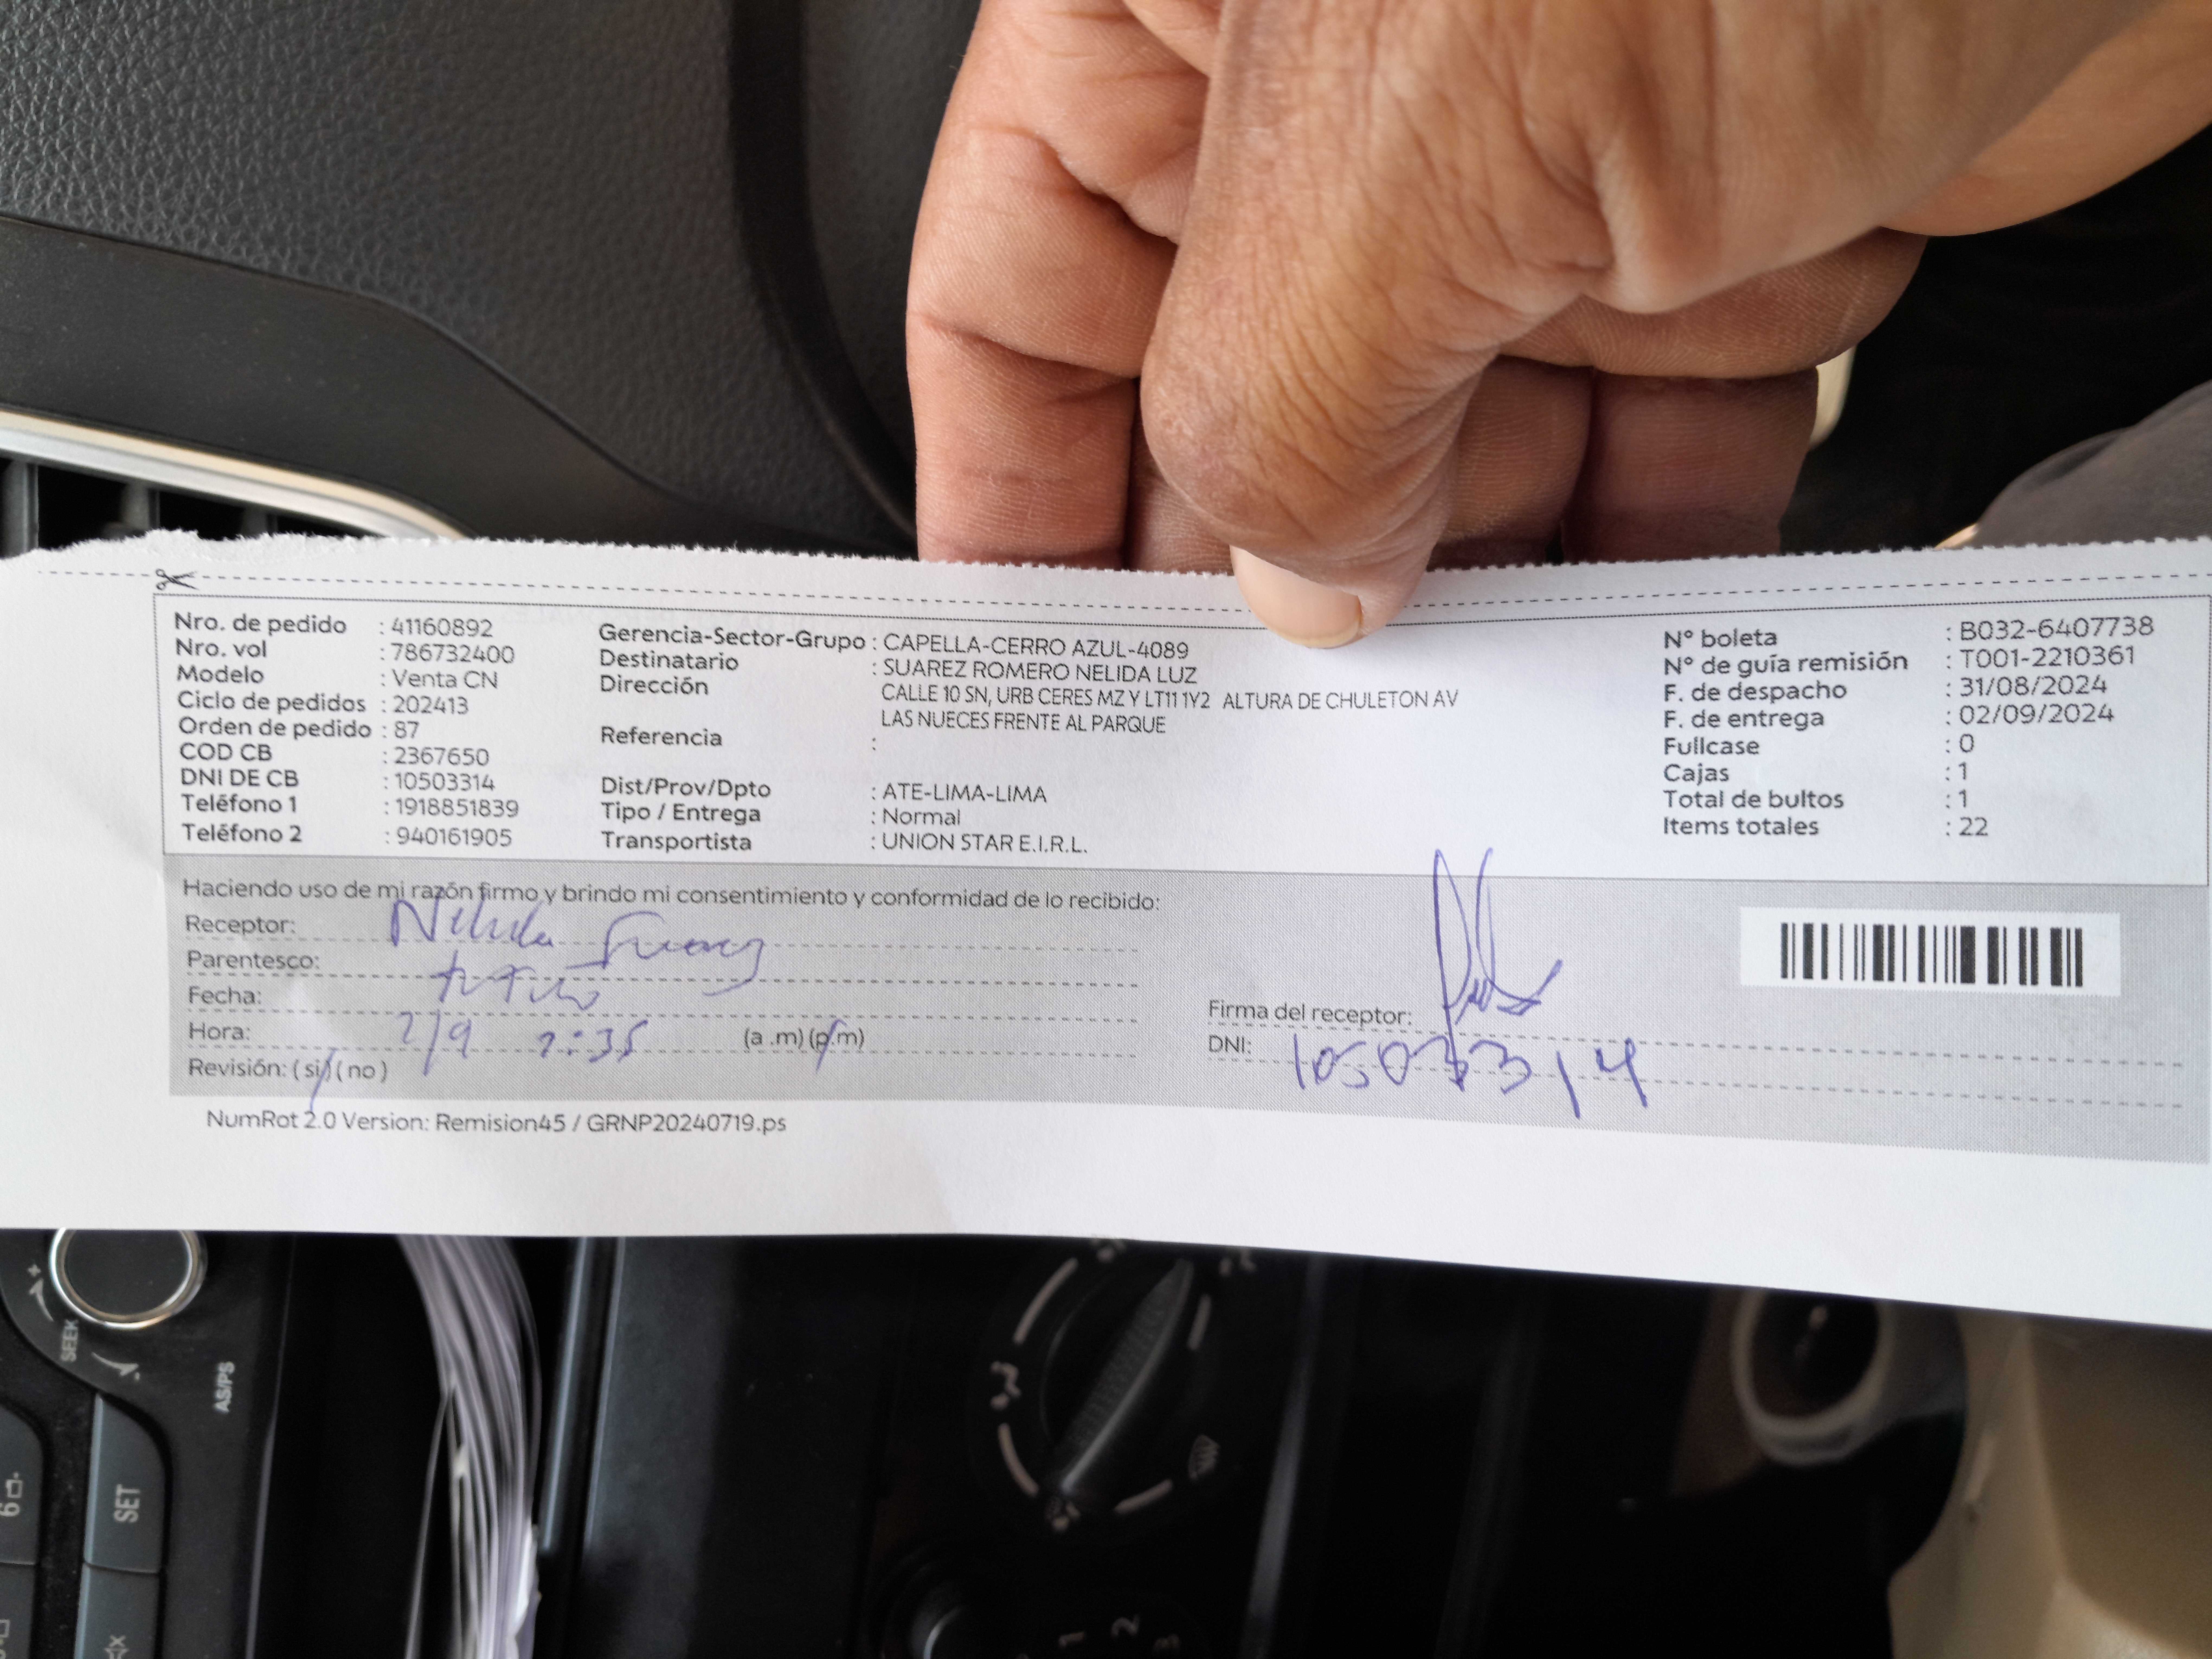 Nro. de pedido : 41160892
Nro. vol : 786732400
Modelo : Venta CN
Ciclo de pedidos : 202413
Orden de pedido : 87
COD CB : 2367650
DNI DE CB : 10503314
Teléfono 1 : 1918851839
Teléfono 2 : 940161905
Gerencia-Sector-Grupo : CAPELLA-CERRO AZUL-4089
Destinatario : SUAREZ ROMERO NELIDA LUZ
Dirección CALLE 10 SN, URB CERES MZ Y LT11 1Y2 ALTURA DE CHULETON AV
LAS NUECES FRENTE AL PARQUE
Referencia :
Dist/Prov/Dpto : ATE-LIMA-LIMA
Tipo / Entrega : Normal
Transportista : UNION STAR E.I.R.L.
N° boleta : B032-6407738
N° de guía remisión : T001-2210361
F. de despacho : 31/08/2024
F. de entrega : 02/09/2024
Fullcase : 0
Cajas : 1
Total de bultos : 1
Items totales : 22
Haciendo uso de mi razón firmo y brindo mi consentimiento y conformidad de lo recibido:
Receptor: Nelida Suarez
Parentesco:
Fecha:
Hora: 2/9 :35 (a .m) (p.m)
Revisión: ( si ) ( no )
Firma del receptor:
DNI: 10503314
NumRot 2.0 Version: Remision45 / GRNP20240719.ps
SEEK
AS/PS
SET
6
1 2 3